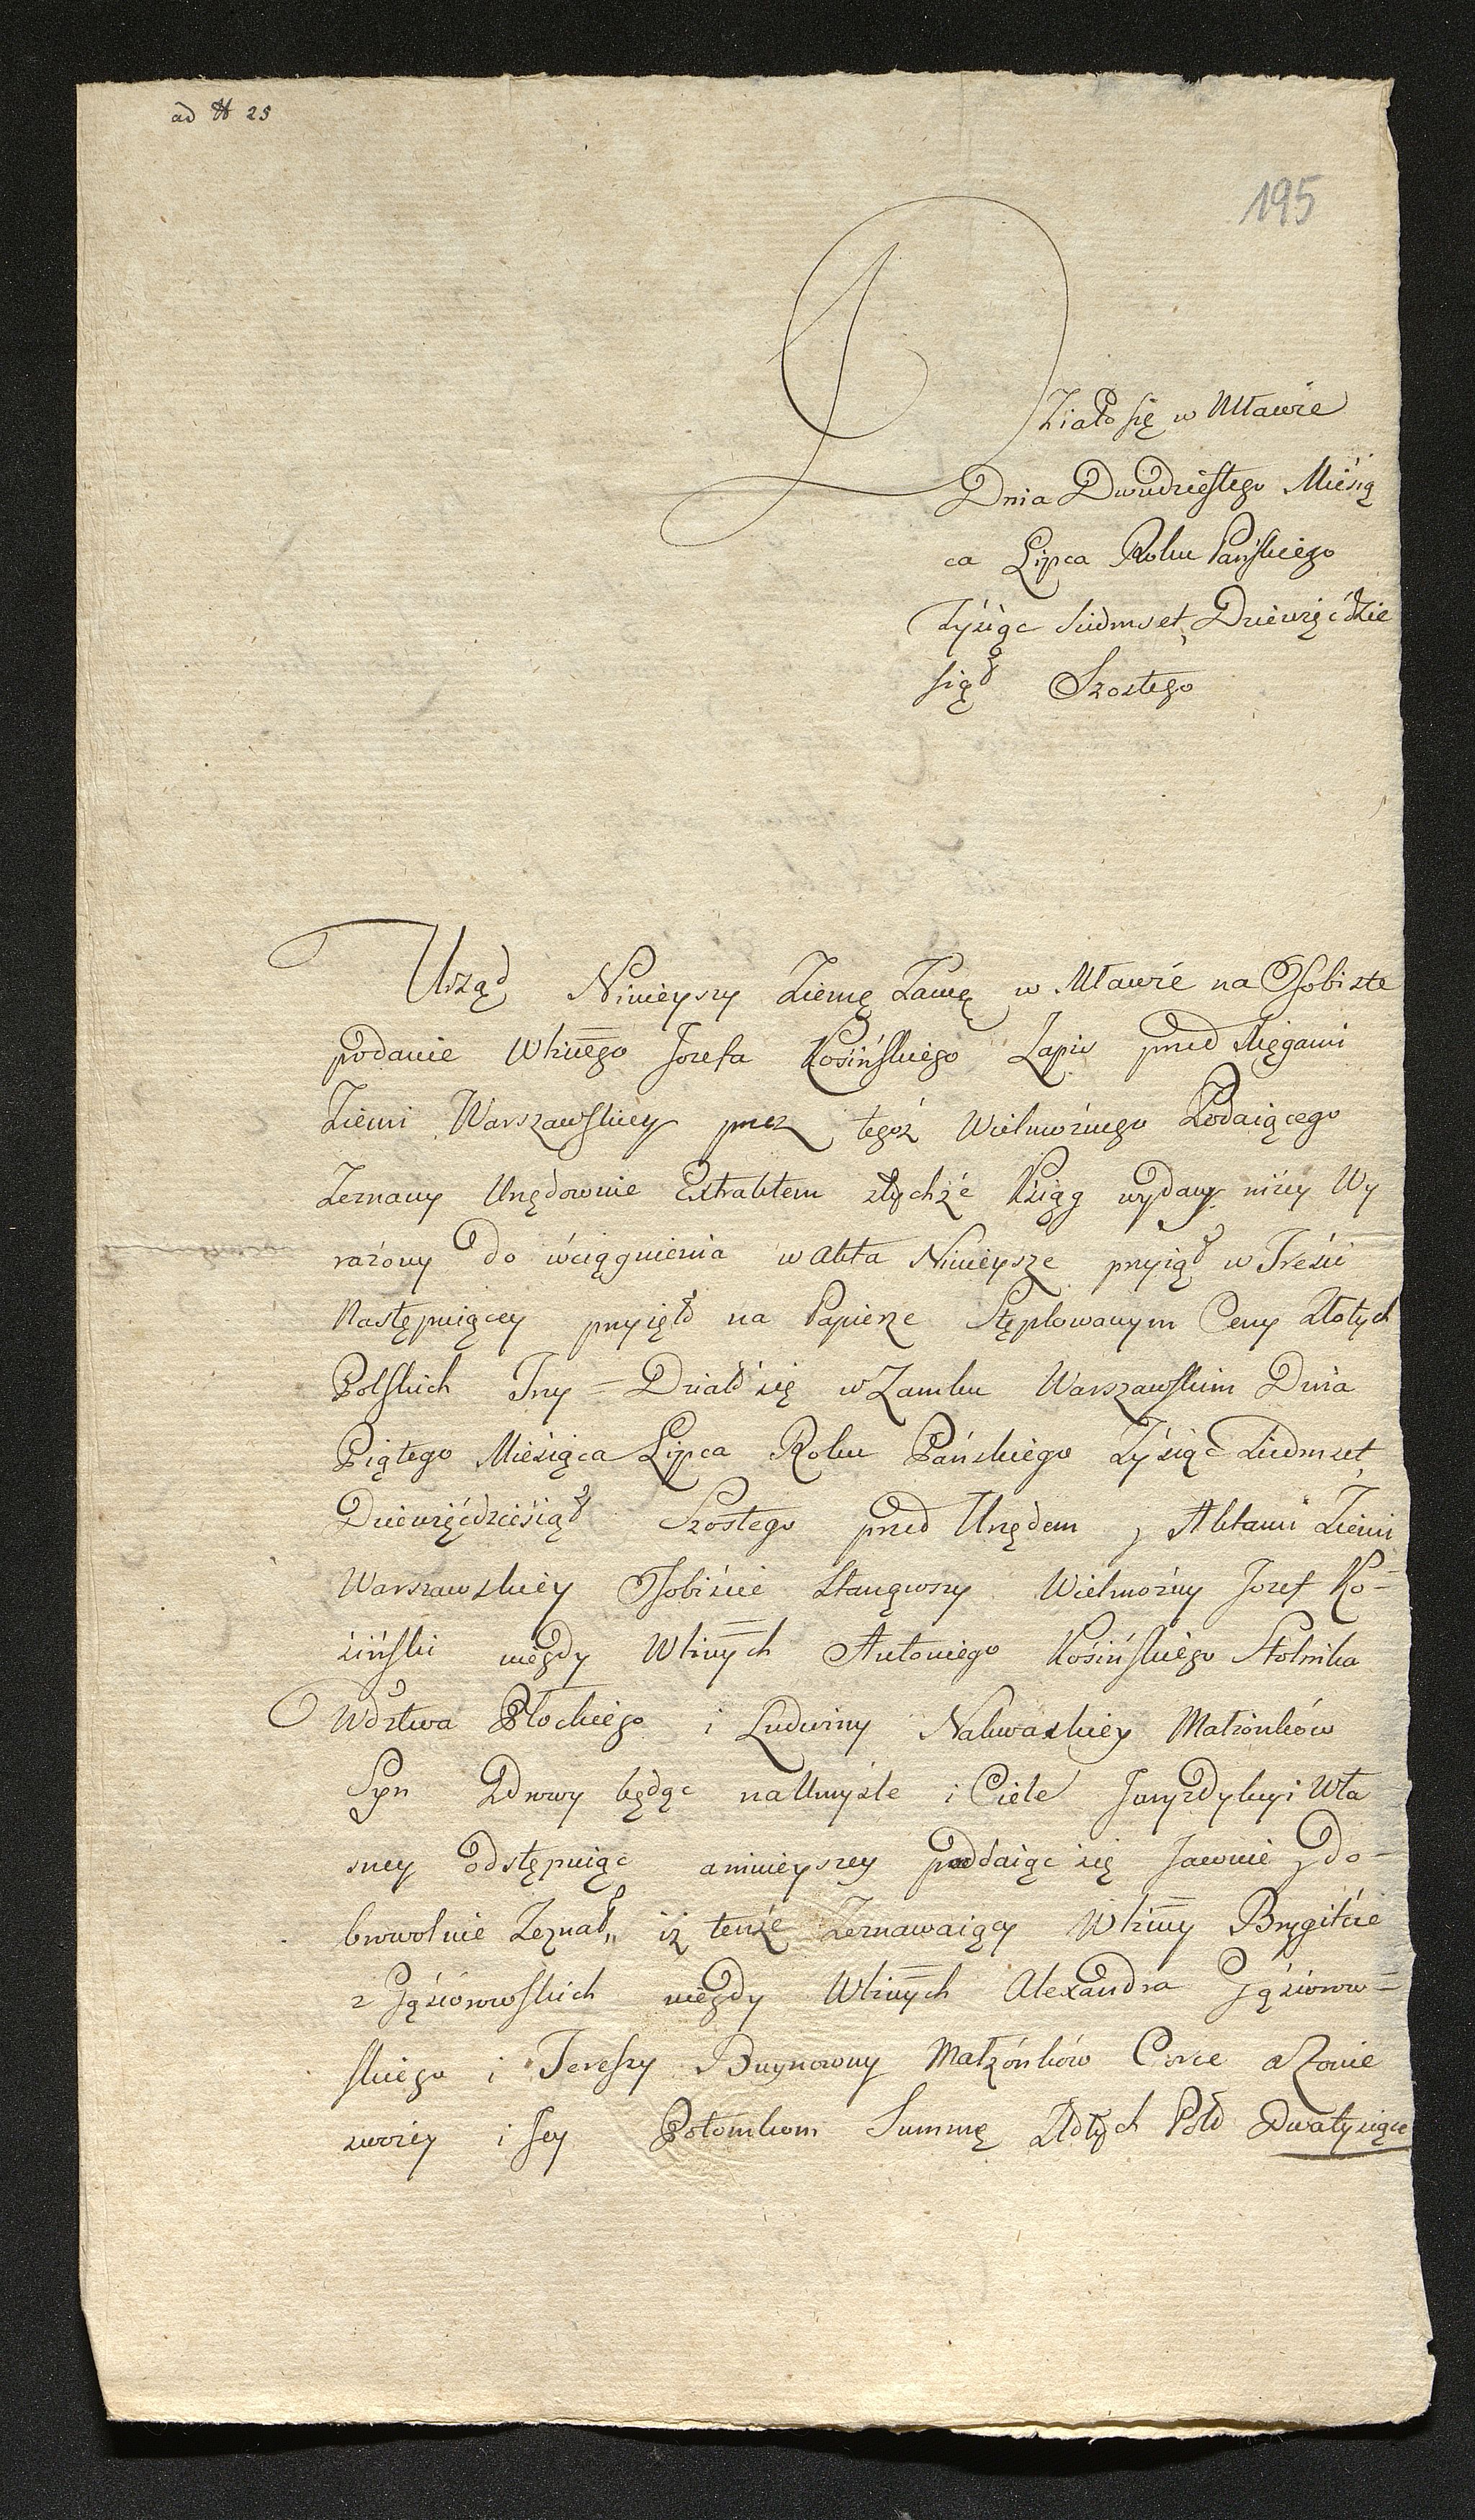 ad # 25
195
Działo się w Mławie
Dnia Dwudziestego Miesią
ca Lipca Roku Pańskiego
Tysiąc Siedmset Dziewięćdzie
siąt Szostego
Urząd Ninieyszy Ziemę Zawę w Mławie na Osobiste
podanie Wżnego Jozefa Kosińskiego Zapis przed Xięgami
Ziemi Warszawskiey przez tegoż Wielmożnego Podaiącego
Zeznany Urzędownie Extraktem ztychże Ksiąg wydany niżey Wy
rażony do wciągnienia w Akta Ninieysze przyiął w Treści
Następuiącey przyięto na Papierze Stęplowanym Ceny Złotych
Polskich Trzy = Działo się w Zamku Warszawskim Dnia
Piątego Miesiąca Lipca Roku Pańskiego Tysiąc Siedmset
Dziewięćdziesiąt Szostego przed Urzędem y Aktami Ziemi
Warszawskiey Osobiście Stanąwszy Wielmożny Jozef Ko-
siński niegdy Wżnych Antoniego Kosińskiego Stolnika
Wdztwa Płockiego i Ludwiny Nakwaskiey Małżonków
Syn Zdrowy będąc na Umyśle i Ciele Juryzdykcyi Wła
sney odstępuiąc a ninieyszey poddaiąc się Jawnie y do-
browolnie Zeznał„ iż tenże Zeznawaiący Wżnny Brygitcie
z Jąsiorowskich niegdy Wżnnych Alexandra Jąsiorow=
skiego i Tereszy Buynowny Małżonków Corce a Zonie
swoiey i Jey Potomkom Summę Złotych Pol Dwatysiące